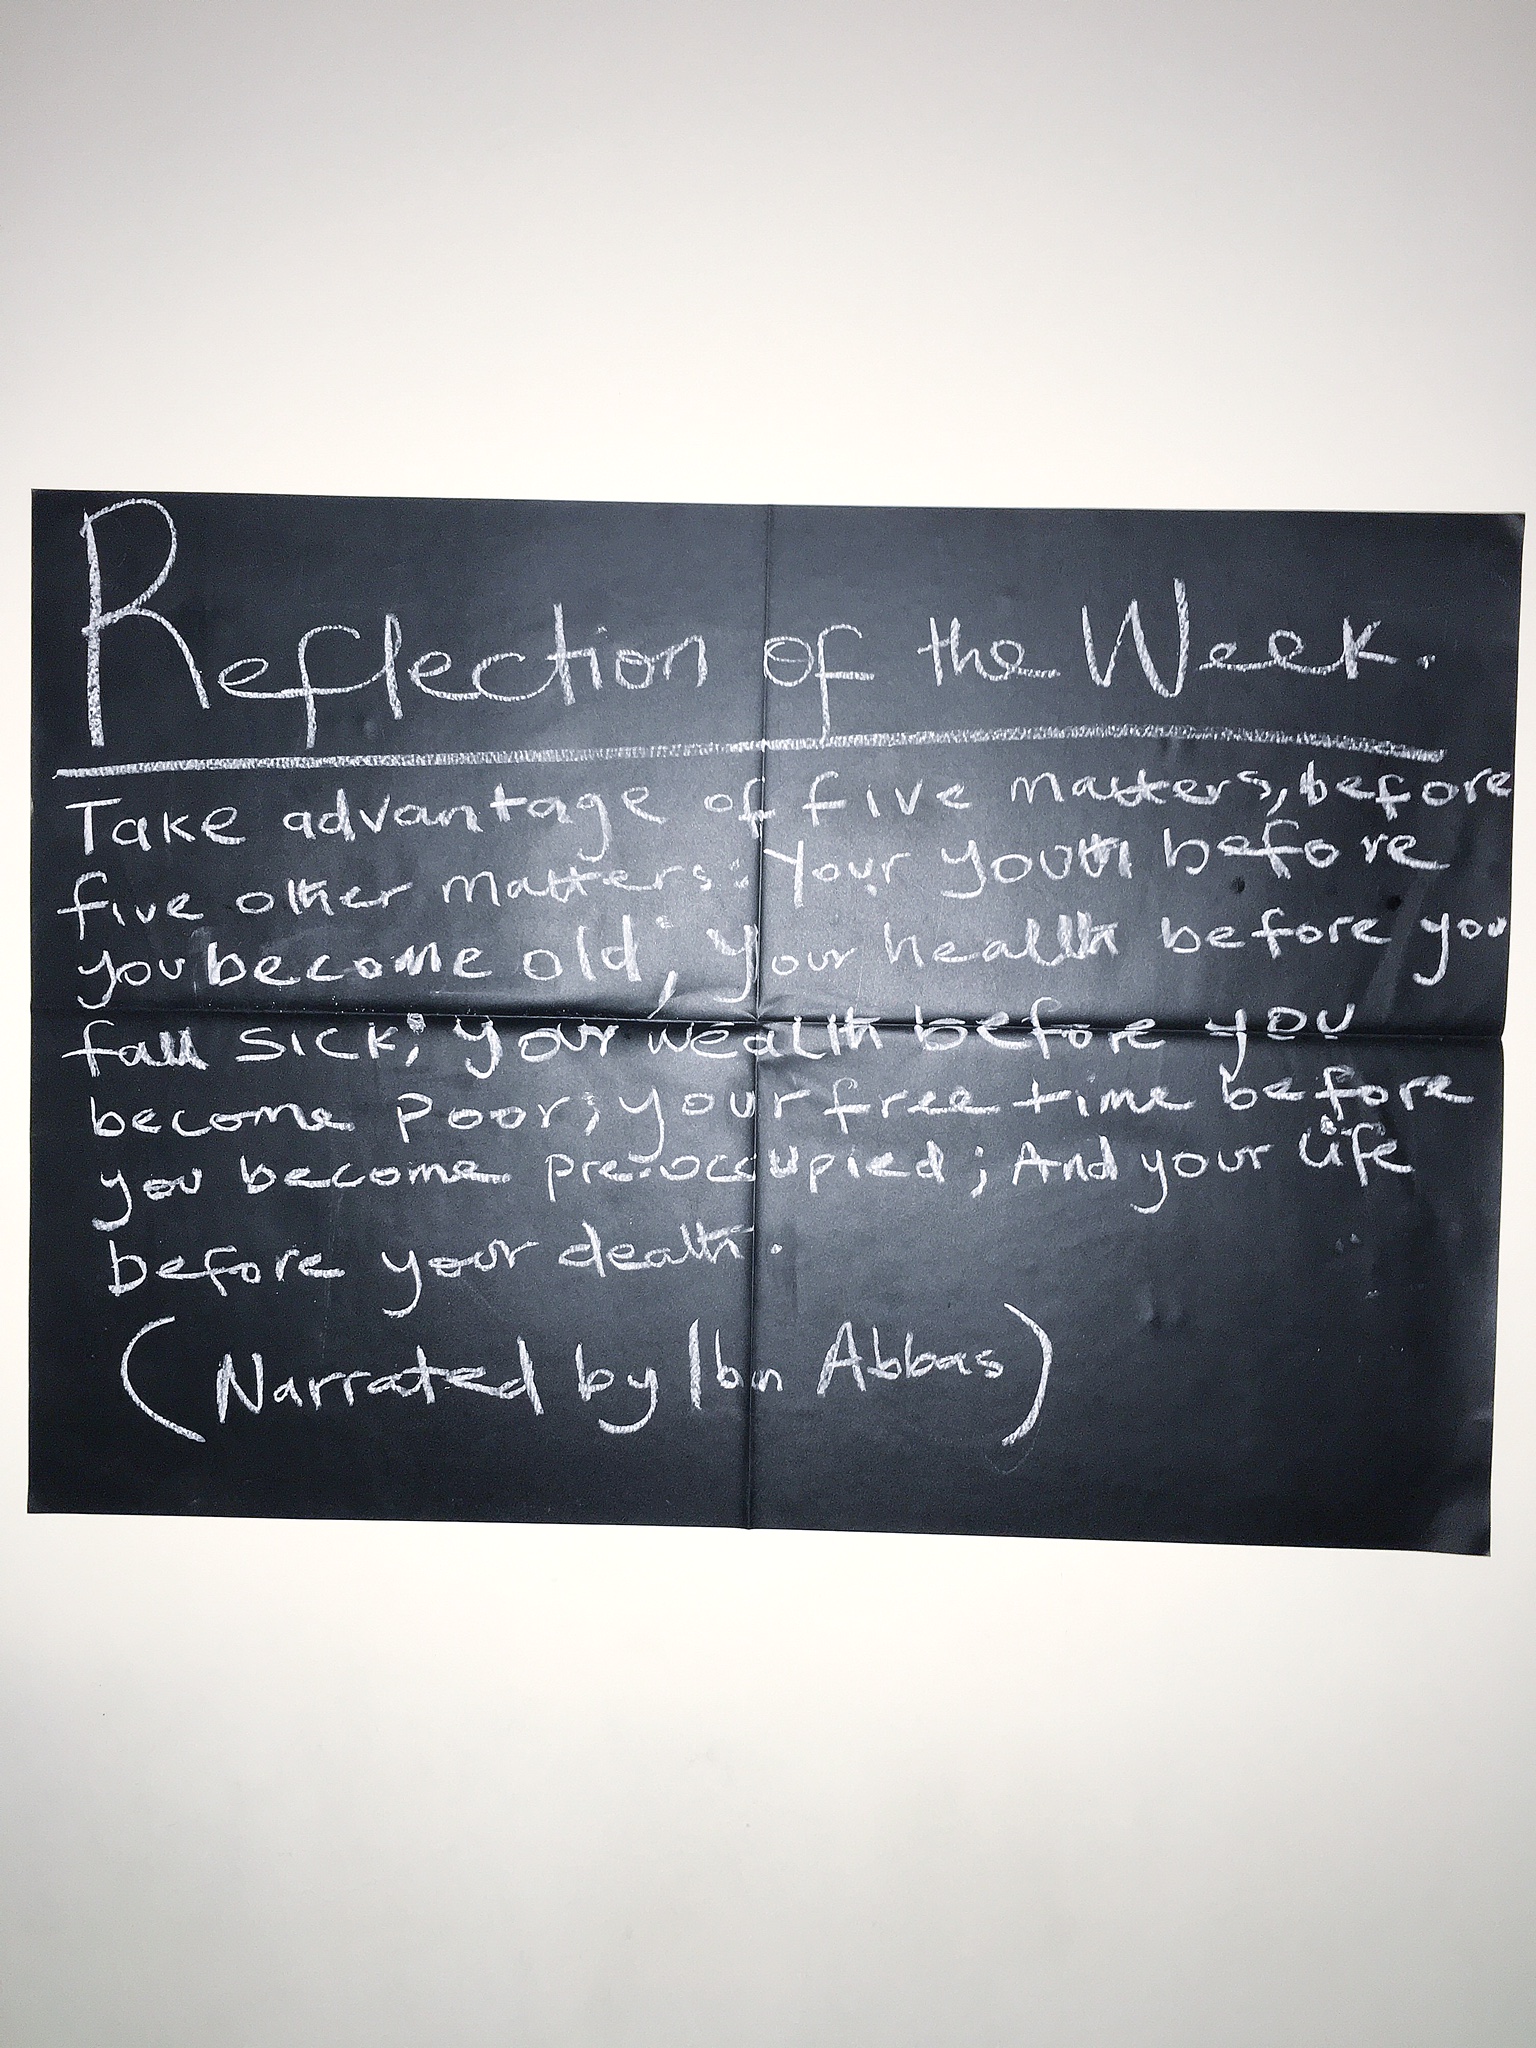 Reflection of the Week.
Take advantage of five matters, before
five other matters: Your youth before
you become old; your health before you
fall sick; your wealth before you
become poor; your free time before
you become pre-occupied; And your life
before your death.
(Narrated by Ibn Abbas)